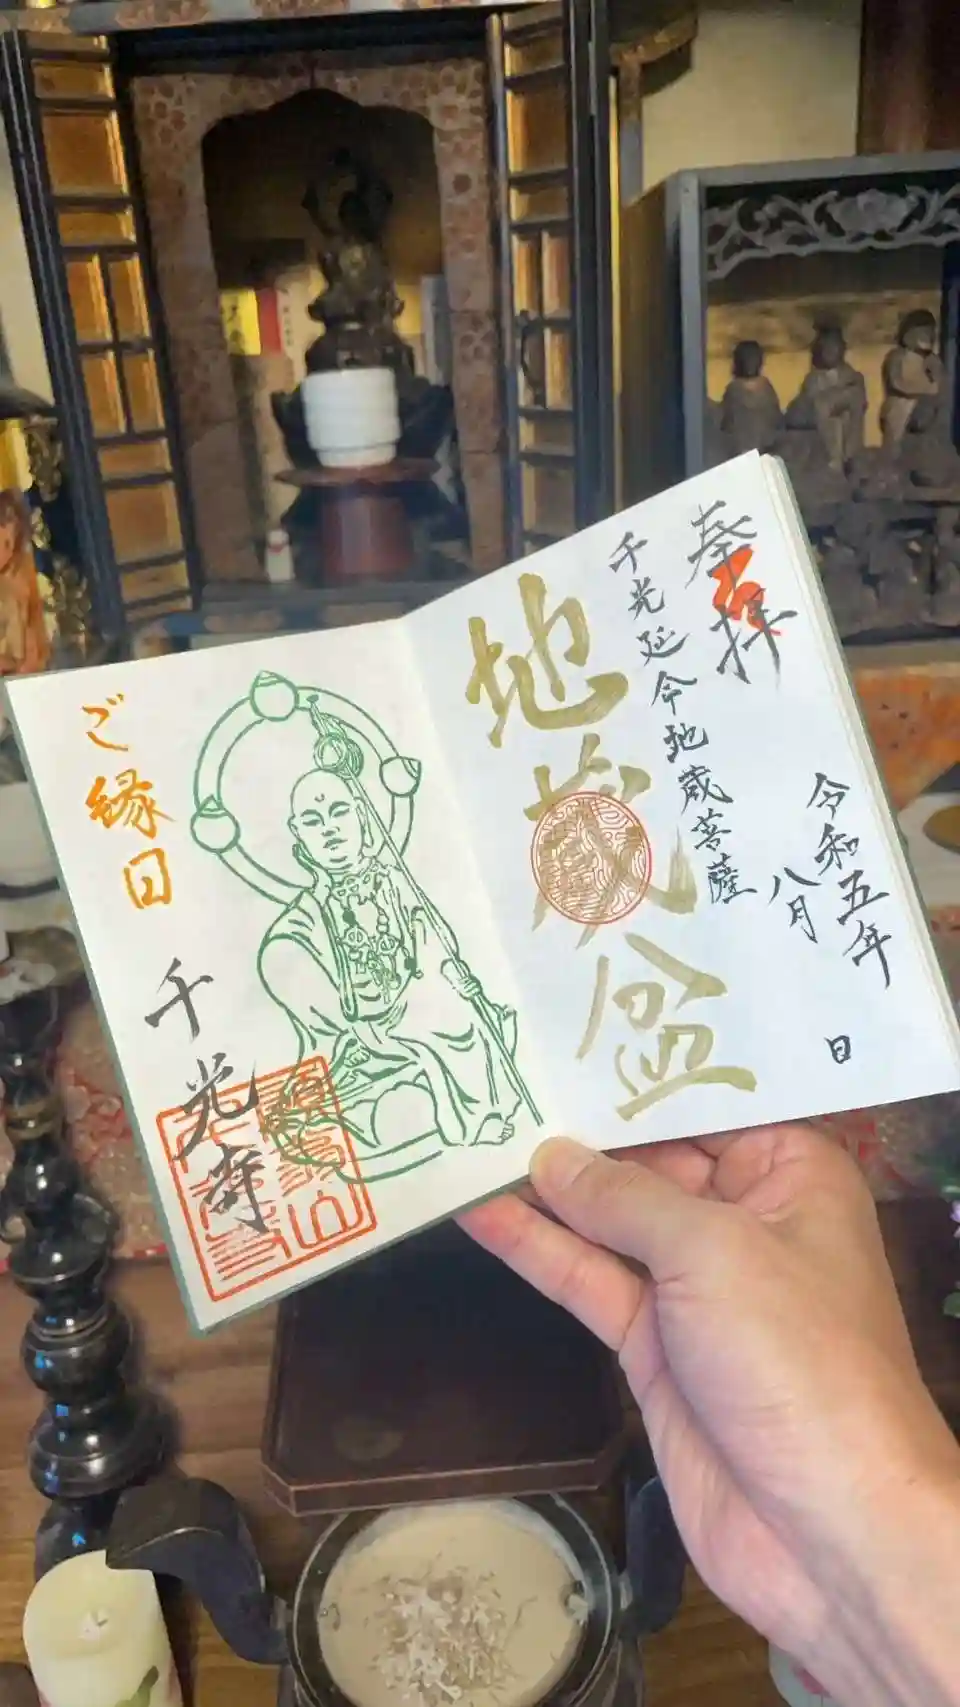 奉拝
令和五年
八月
日
千光延命地蔵菩薩
地蔵盆
ご縁日
千光寺